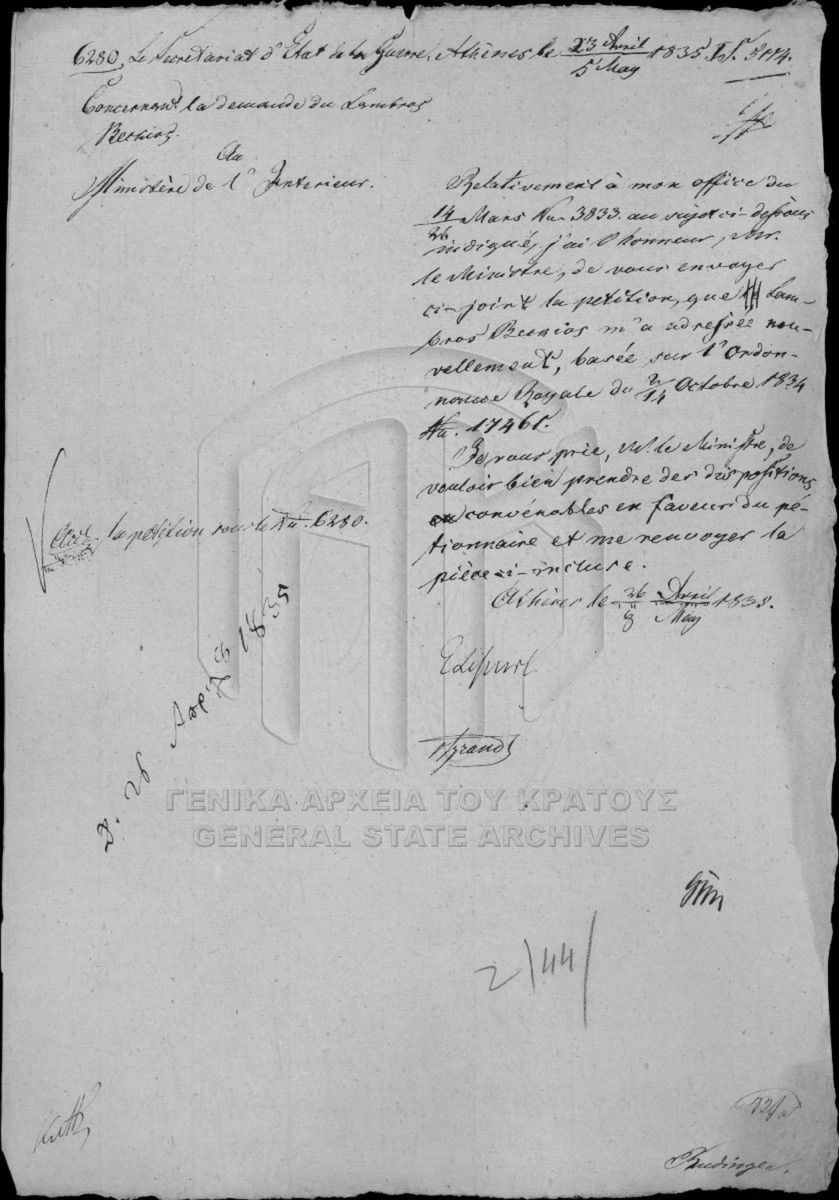 6280. Le Secretariat d'Etat de la Guerre. Athènes le 23 Avril / 5 May 1835. 5114.
Concernant la demande du Lambros
Bethios.
Au
Ministère de l'Interieur.
Relativement à mon office du
14/26 Mars No. 3833. au sujet ci-dessous
indiqué, j'ai l'honneur, Mr.
le Ministre, de vous envoyer
ci-joint la petition, que Lam-
bros Bethios m'a adressée nou-
vellement, basée sur l'ordon-
nance Royale du 2/14 Octobre 1834
No. 17461.
Je vous prie, M. le Ministre, de
vouloir bien prendre des dispositions
convénables en faveur du pé-
titionnaire et me renvoyer la
pièce ci-incluse.
Athènes le 26 Avril / 8 May 1835.
la pétition sous le No. 6280.
26 Απριλ 1835
ΓΕΝΙΚΑ ΑΡΧΕΙΑ ΤΟΥ ΚΡΑΤΟΥΣ
GENERAL STATE ARCHIVES
2/44/
Budinger.